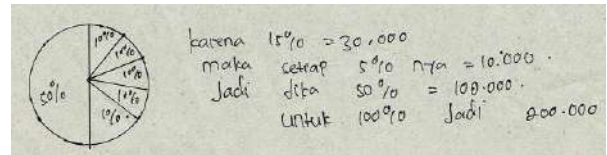 50%
10%
10%
10%
10%
10%
karena 15% = 30.000
maka setiap 5% nya = 10.000.
Jadi jika 50% = 100.000.
untuk 100% Jadi 200.000